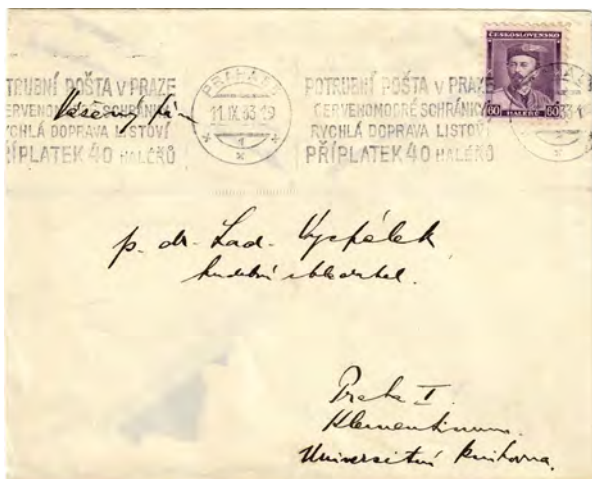 POTRUBNÍ POŠTA V PRAZE
ČERVENOMODRÉ SCHRÁNKY
RYCHLÁ DOPRAVA LISTOVÍ
PŘÍPLATEK 40 HALÉŘŮ
PRAHA
11.IX.33-19
1
POTRUBNÍ POŠTA V PRAZE
ČERVENOMODRÉ SCHRÁNKY
RYCHLÁ DOPRAVA LISTOVÍ
PŘÍPLATEK 40 HALÉŘŮ
ČESKOSLOVENSKO
60 HALÉŘŮ 60
33-1
p. dr. Lad. Vycpálek
hudební skladatel.
Praha I.
Klementinum.
Universitní knihovna.